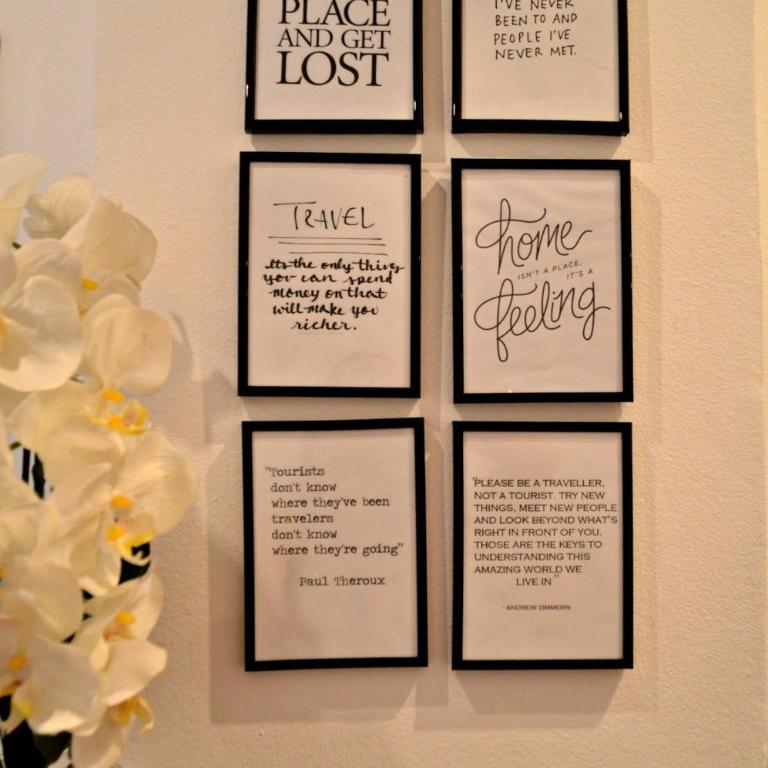 PLACE
AND GET
LOST
I'VE NEVER
BEEN TO AND
PEOPLE I'VE
NEVER MET.
TRAVEL
Its the only thing
you can spend
money on that
will make you
richer.
home
ISN'T A PLACE,
IT'S A
feeling
"Tourists
don't know
where they've been
travelers
don't know
where they're going"
Paul Theroux
"PLEASE BE A TRAVELLER,
NOT A TOURIST. TRY NEW
THINGS, MEET NEW PEOPLE
AND LOOK BEYOND WHAT'S
RIGHT IN FRONT OF YOU.
THOSE ARE THE KEYS TO
UNDERSTANDING THIS
AMAZING WORLD WE
LIVE IN"
- ANDREW ZIMMERN-